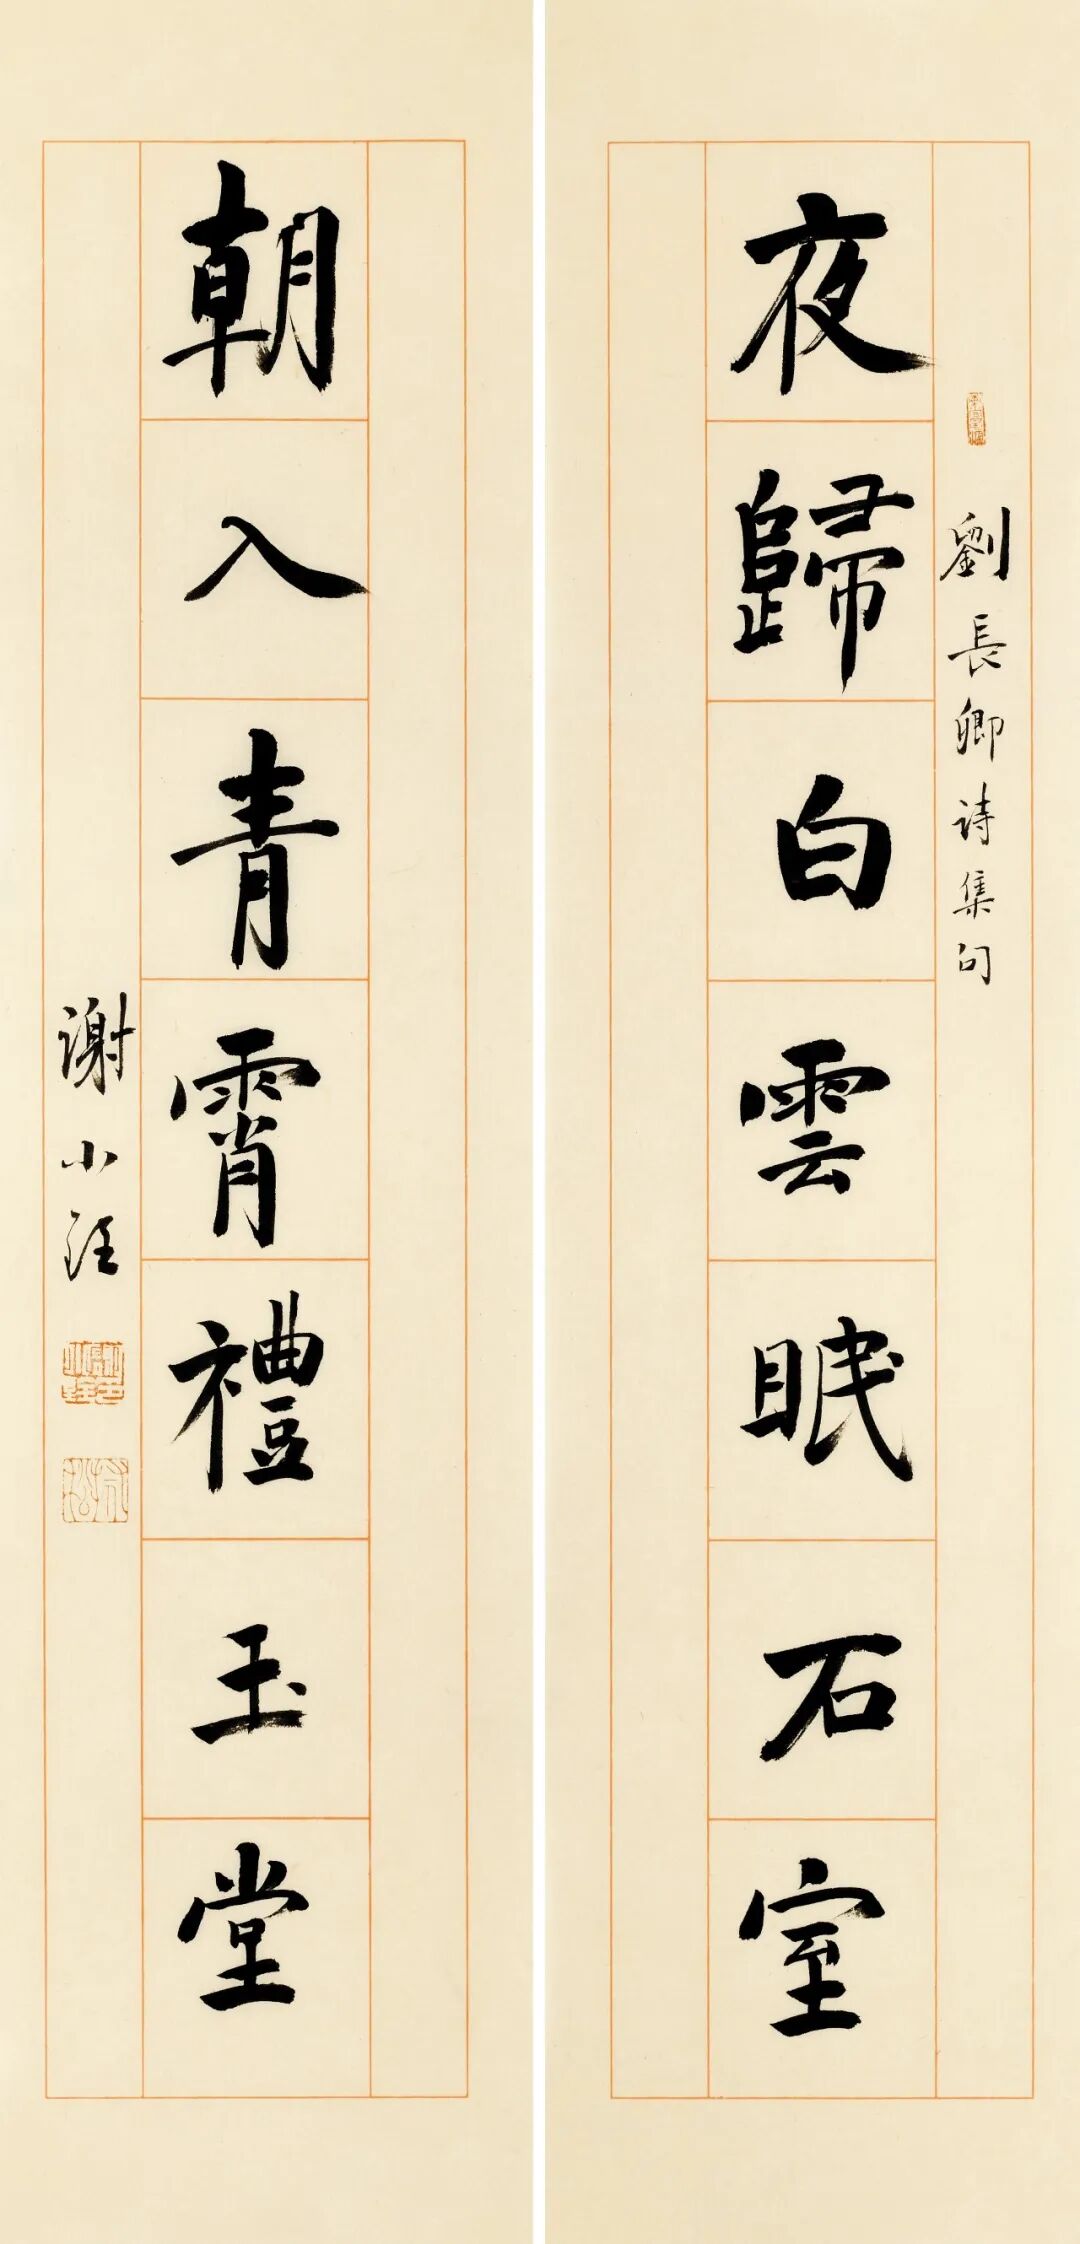 劉長卿诗集句
夜歸白雲眠石室
朝入青霄禮玉堂
谢小銓